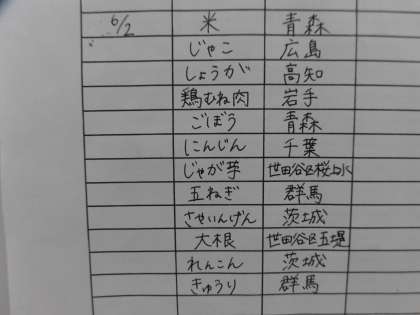 6/2 米 青森
じゃこ 広島
しょうが 高知
鶏むね肉 岩手
ごぼう 青森
にんじん 千葉
じゃが芋 世田谷区桜上水
玉ねぎ 群馬
さやいんげん 茨城
大根 世田谷区玉堤
れんこん 茨城
きゅうり 群馬